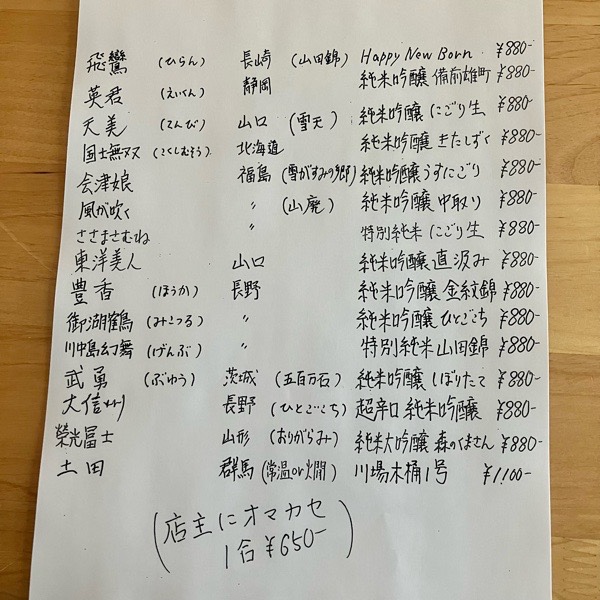 飛鸞 (ひらん) 長崎 (山田錦) Happy New Born ¥880-
英君 (えいくん) 静岡 純米吟醸 備前雄町 ¥880-
天美 (てんび) 山口 (雪天) 純米吟醸 にごり生 ¥880-
国士無双 (こくしむそう) 北海道 純米吟醸 きたしずく ¥880-
会津娘 福島 (雪がすみの郷) 純米吟醸うすにごり ¥880-
風が吹く 〃 (山廃) 純米吟醸 中取り ¥880-
ささまさむね 〃 特別純米 にごり生 ¥880-
東洋美人 山口 純米吟醸 直汲み ¥880-
豊香 (ほうか) 長野 純米吟醸 金紋錦 ¥880-
御湖鶴 (みこつる) 〃 純米吟醸 ひとごこち ¥880-
川中島幻舞 (げんぶ) 〃 特別純米山田錦 ¥880-
武勇 (ぶゆう) 茨城 (五百万石) 純米吟醸 しぼりたて ¥880-
大信州 長野 (ひとごこち) 超辛口 純米吟醸 ¥880-
榮光冨士 山形 (おりがらみ) 純米大吟醸 森のくまさん ¥880-
土田 群馬 (常温or燗) 川場木桶1号 ¥1,100-
(店主にオマカセ
1合¥650-)